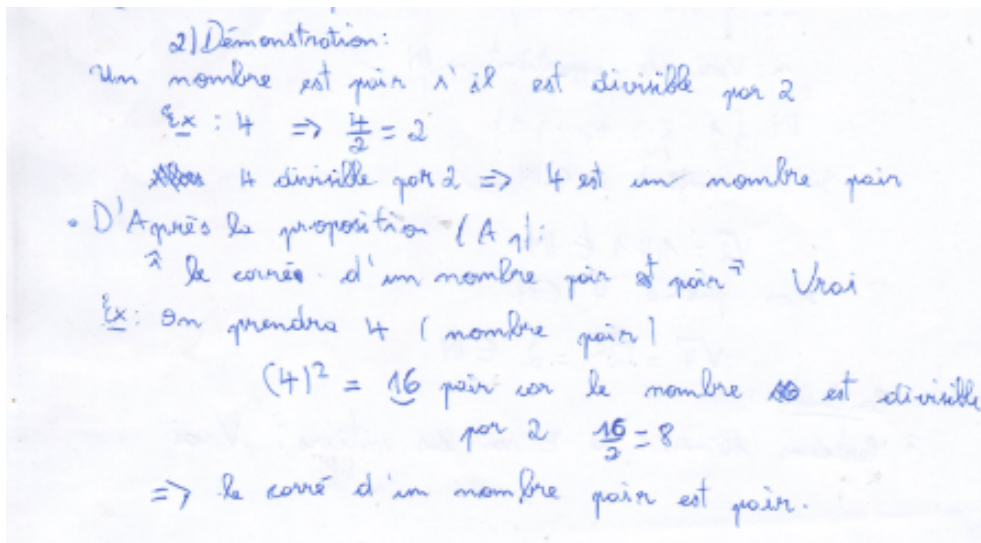 2) Démonstration:
Un nombre est pair s'il est divisible par 2
Ex : 4 => 4/2 = 2
4 divisible par 2 => 4 est un nombre pair
• D'Après la proposition (A 1):
" le carrée d'un nombre pair est pair" Vrai
Ex: On prendra 4 ( nombre pair )
(4)² = 16 pair car le nombre est divisible
par 2 16/2 = 8
=> le carré d'un nombre pair est pair.